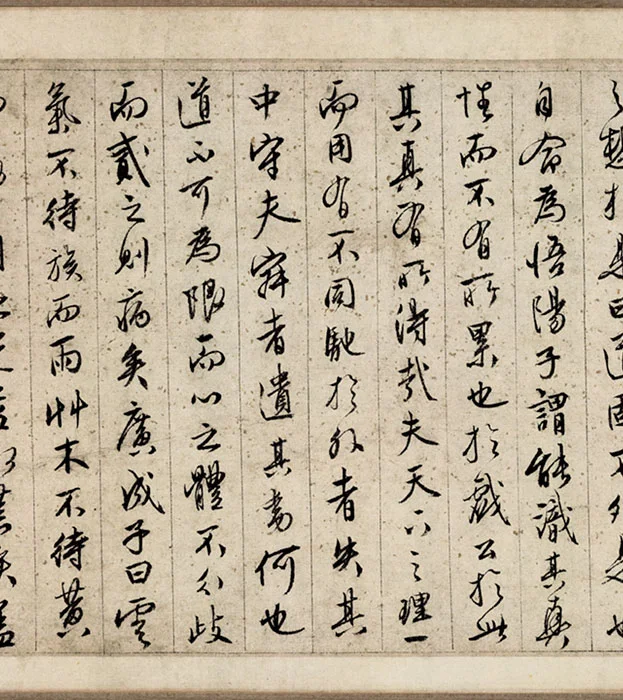 是曰道固不外是也
自命為悟陽子謂能識其真
性而不有所累也於戲公於此
其真有所得哉夫天下之理一
而用有不同馳於外者失其
中守夫寂者遺其為何也
道不可為限而心之體不分歧
而貳之則病矣廣成子曰雲
氣不待族而雨艸木不待黃